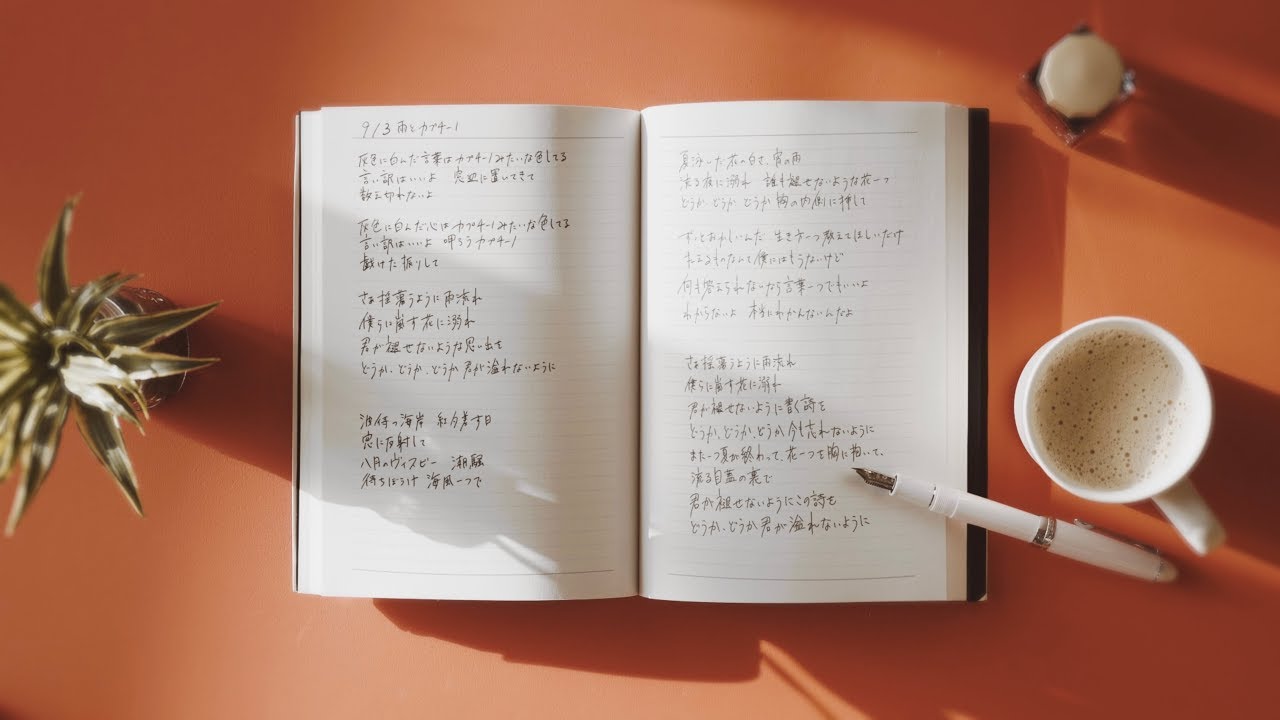 9/3 雨とカプチーノ
灰色に白んだ言葉はカプチーノみたいな色してる
言い訳はいいよ 窓辺に置いてきて
数え切れないよ
灰色に白んだ心はカプチーノみたいな色してる
言い訳はいいよ 呷ろうカプチーノ
戯けた振りして
さぁ揺蕩うように雨流れ
僕らに嵐す花に溺れ
君が褪せないような思い出を
どうか、どうか、どうか君が溢れないように
波待つ海岸 紅夕差す日
窓に反射して
八月のヴィスビー 潮騒
待ちぼうけ 海風一つで
夏泳いだ花の白さ、宵の雨
流る夜に溺れ 誰も褪せないような花一つ
どうか どうか どうか 胸の内側に挿して
ずっとおかしいんだ 生き方一つ教えてほしいだけ
払えるものなんて僕にはもうないけど
何も答えられないなら言葉一つでもいいよ
わからないよ 本当にわかんないんだよ
さぁ揺蕩うように雨流れ
僕らに嵐す花に溺れ
君が褪せないように書く詩を
どうか、どうか、どうか今も忘れないように
また一つ夏が終わって、花一つを胸に抱いて、
流る目蓋の裏で
君が褪せないようにこの詩を
どうか、どうか君が溢れないように